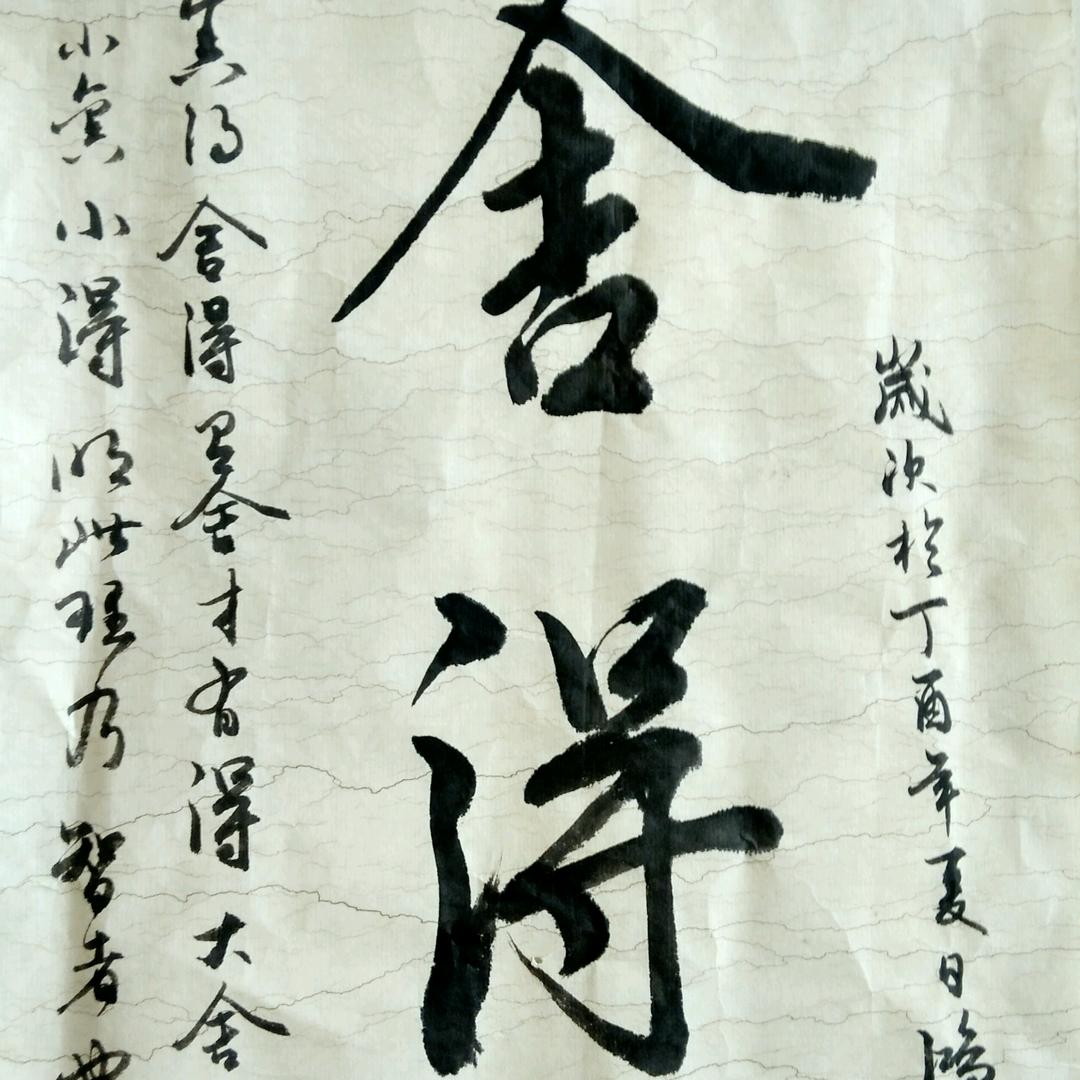 歲次於丁酉年夏日鴻
舍得
得舍得舍才有得大舍
小小得明此理乃智者也